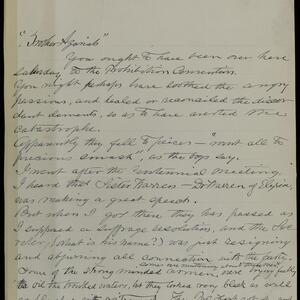 "Brother Azariah"
You ought to have been over here
Saturday to the Prohibition Convention.
You might perhaps have soothed the angry
passions, and healed or reconciled the discor
dant elements, so as to have averted the
catastrophe.
Apparently they fell to pieces - "went all to
precious smash", as the boys say.
I went after the Centennial Meeting.
I heard that Sister Warren - Dr Warren of Elyria,
was making a great speech.
But when I got there they had passed as
I supposed a suffrage resolution, and the
(what is his name?) was just resigning
and abjuring all connection with the party.
Some of the strong minded women, were trying
to oil the troubled waters, but they